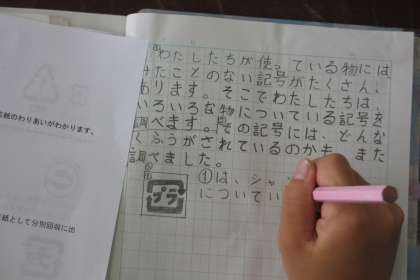 わたしたちが使っている物には
みたことのない記号がたくさん
あります。そこでわたしたちは、
いろいろな物についている記号を
調べます。その記号には、どんな
くふうがされているのかも、また
調べました。
①は、シャン
についてい
プラ
紙のわりあいがわかります。
紙として分別回収に出